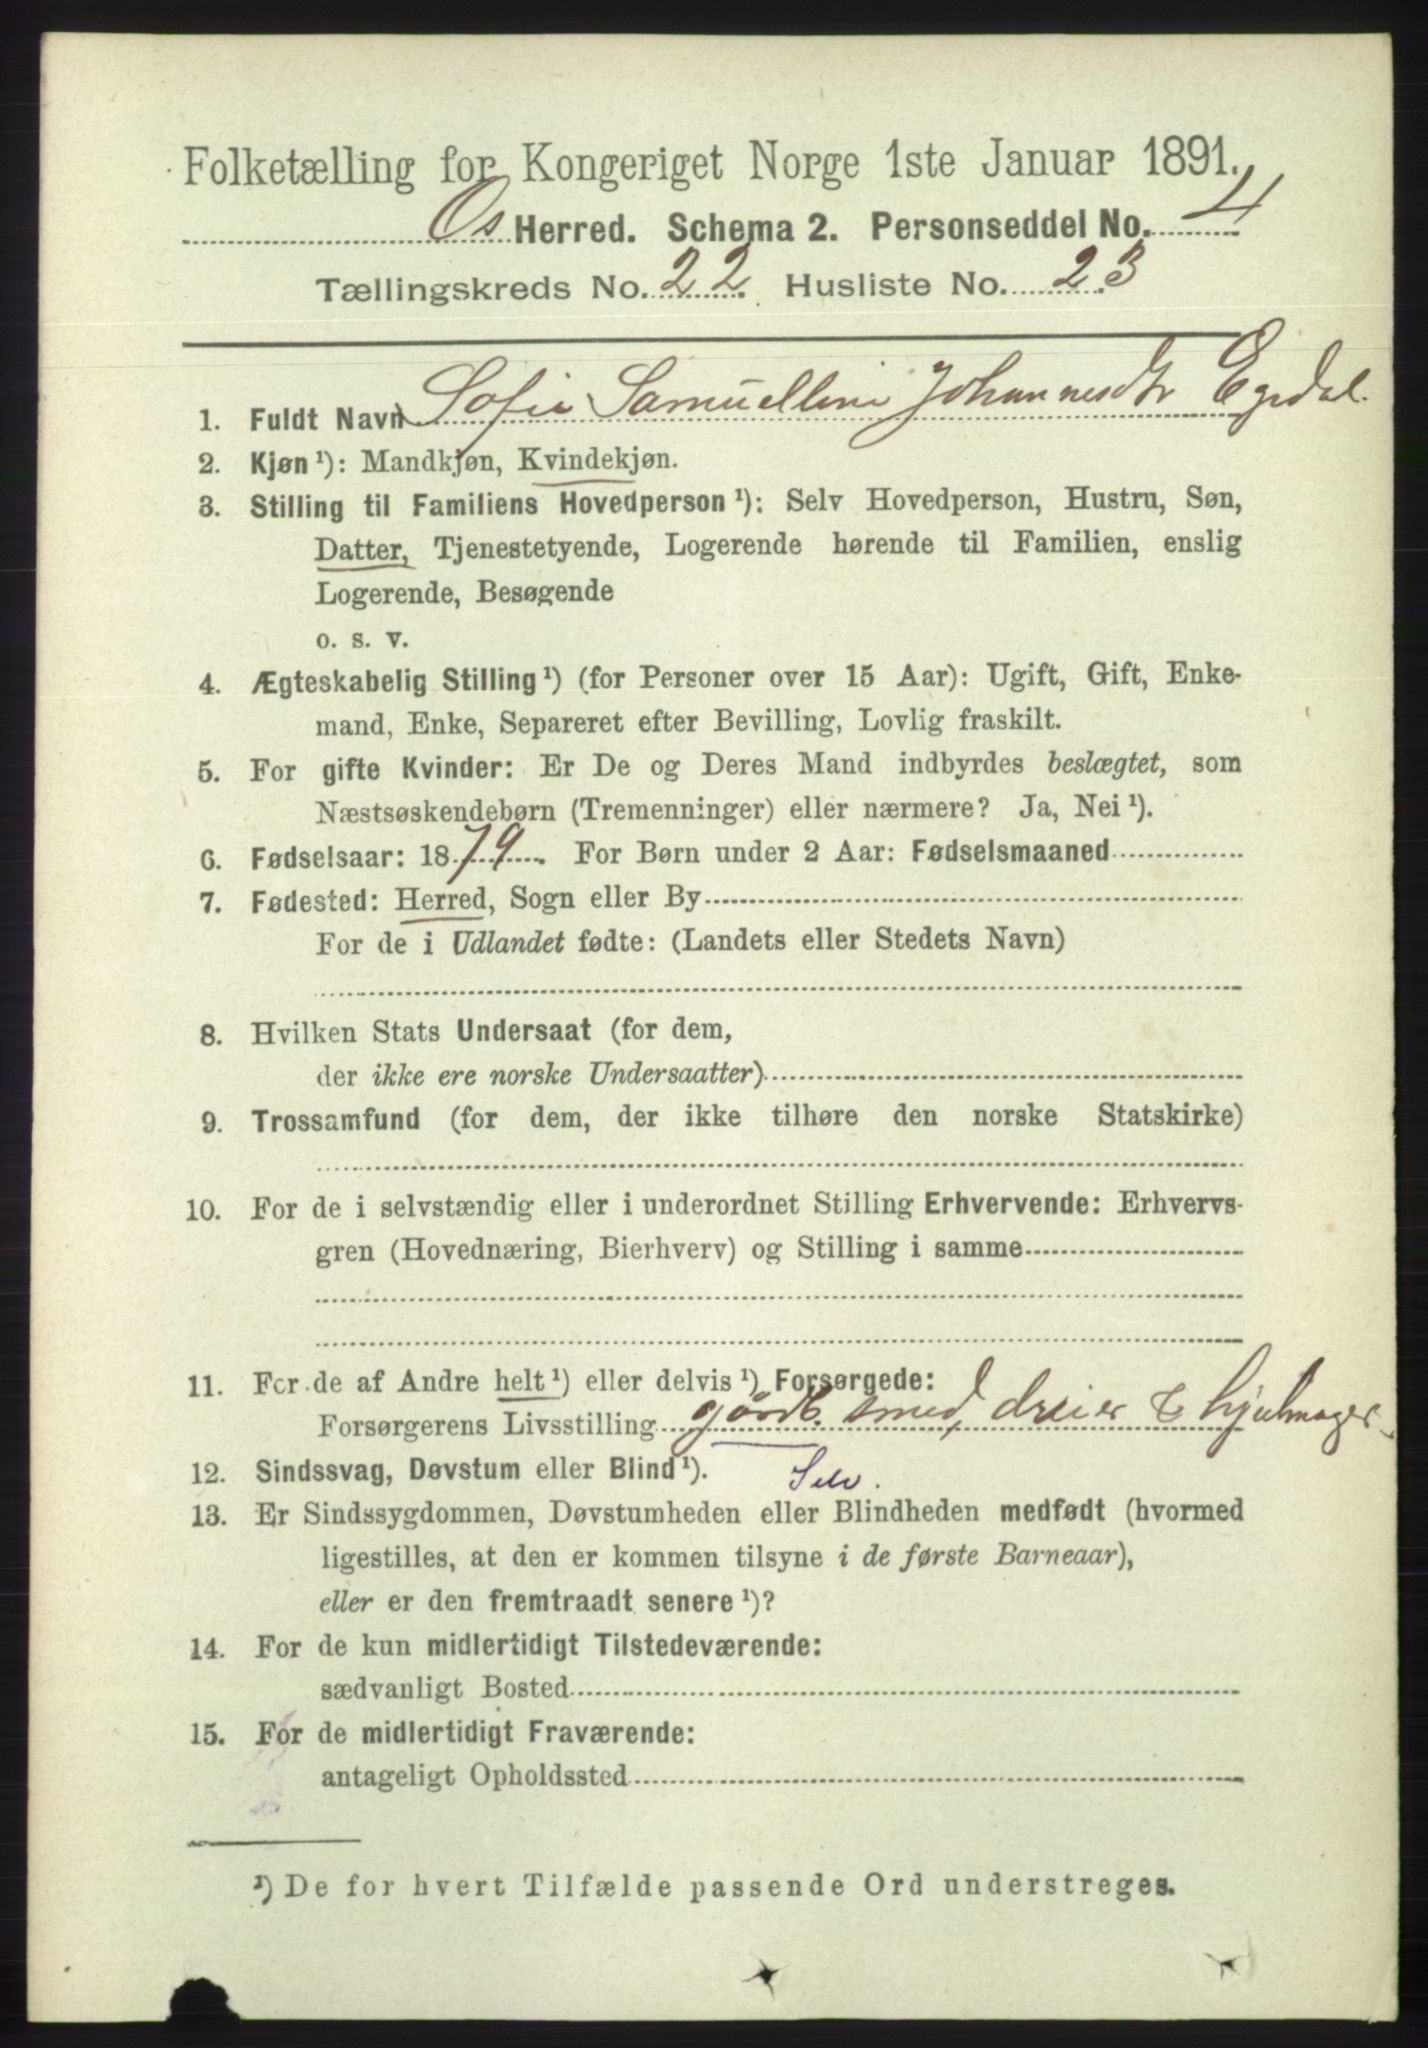 Folketælling for Kongeriget Norge 1ste Januar 1891.
Os Herred. Schema 2. Personseddel No. 4
Tællingskreds No. 22. Husliste No. 23
1. Fuldt Navn Sofie Samueline Johannesdtr Egedal.
2. Kjøn ¹): Mandkjøn, Kvindekjøn.
3. Stilling til Familiens Hovedperson ¹): Selv Hovedperson, Hustru, Søn,
Datter, Tjenestetyende, Logerende hørende til Familien, enslig
Logerende, Besøgende
o. s. v.
4. Ægteskabelig Stilling ¹) (for Personer over 15 Aar): Ugift, Gift, Enke-
mand, Enke, Separeret efter Bevilling, Lovlig fraskilt.
5. For gifte Kvinder: Er De og Deres Mand indbyrdes beslægtet, som
Næstsøskendebørn (Tremenninger) eller nærmere? Ja, Nei ¹).
6. Fødselsaar: 1879. For Børn under 2 Aar: Fødselsmaaned
7. Fødested: Herred, Sogn eller By
For de i Udlandet fødte: (Landets eller Stedets Navn)
8. Hvilken Stats Undersaat (for dem,
der ikke ere norske Undersaatter)
9. Trossamfund (for dem, der ikke tilhøre den norske Statskirke)
10. For de i selvstændig eller i underordnet Stilling Erhvervende: Erhvervs-
gren (Hovednæring, Bierhverv) og Stilling i samme
11. For de af Andre helt ¹) eller delvis ¹) Forsørgede:
Forsørgerens Livsstilling gårdb. smed, dreier & hjulmager
12. Sindssvag, Døvstum eller Blind ¹). Selv.
13. Er Sindssygdommen, Døvstumheden eller Blindheden medfødt (hvormed
ligestilles, at den er kommen tilsyne i de første Barneaar),
eller er den fremtraadt senere ¹)?
14. For de kun midlertidigt Tilstedeværende:
sædvanligt Bosted
15. For de midlertidigt Fraværende:
antageligt Opholdssted
¹) De for hvert Tilfælde passende Ord understreges.